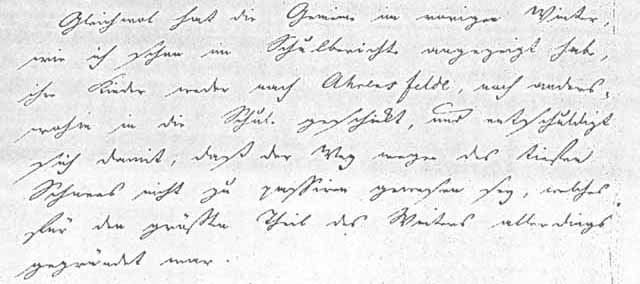 Gleichwol hat die Gemeine im vorigen Winter,
wie ich schon im Schulberichte angezeigt habe,
ihre Kinder weder nach Ahrensfelde, noch anders-
wohin in die Schule geschickt, und entschuldigt
sich damit, daß der Weg wegen des tiefen
Schnees nicht zu passiren gewesen sey, welches
für den größten Theil des Winters allerdings
gegründet war.